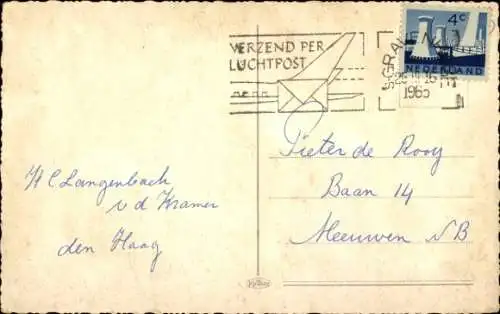 4c
NEDERLAND
VERZEND PER
LUCHTPOST
1965
H C Langenbach
v d Kramer
den Haag
Pieter de Rooy
Baan 14
Meeuwen NB